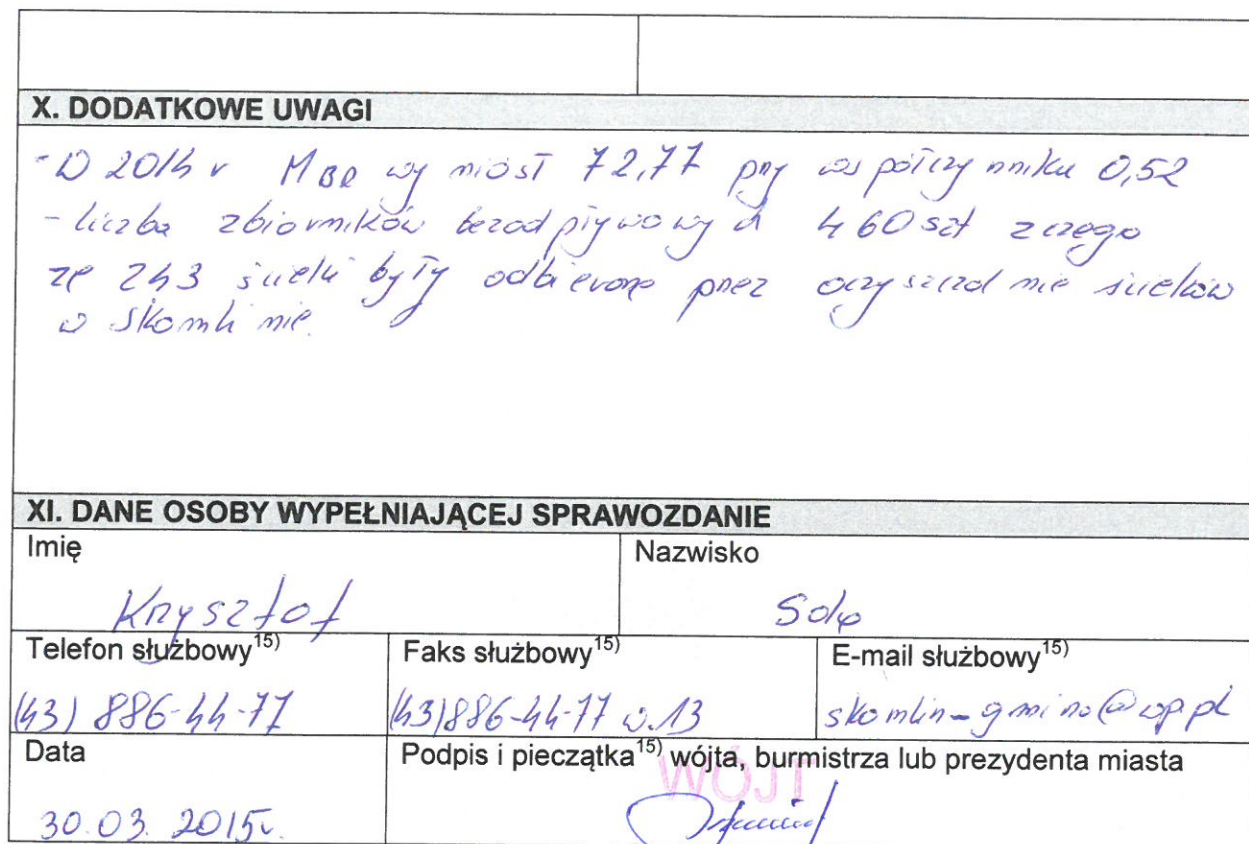 X. DODATKOWE UWAGI
- W 2014 r MBR wyniósł 72,77 przy współczynniku 0,52
- liczba zbiorników bezodpływowych 460 szt z czego
ze 243 ścieki były odbierane przez oczyszczalnie ścieków
w Skomlinie.
XI. DANE OSOBY WYPEŁNIAJĄCEJ SPRAWOZDANIE
Imię Nazwisko
Krzysztof
Telefon służbowy15) Faks służbowy15) E-mail służbowy15)
(43) 886-44-77 (43) 886-44-77 w.13 skomlin-gmina@wp.pl
Data Podpis i pieczątka15) wójta, burmistrza lub prezydenta miasta
WÓJT
30.03.2015r.